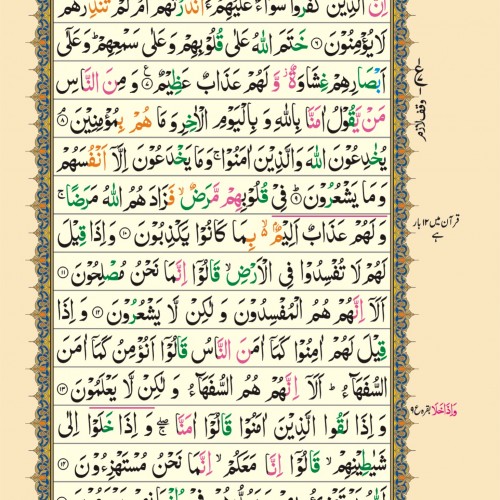 اِنَّ الَّذِيْنَ كَفَرُوْا سَوَآءٌ عَلَيْهِمْ ءَاَنْذَرْتَهُمْ اَمْ لَمْ تُنْذِرْهُمْ
لَا يُؤْمِنُوْنَ ۝۶ خَتَمَ اللّٰهُ عَلٰى قُلُوْبِهِمْ وَ عَلٰى سَمْعِهِمْ ؕ وَ عَلٰۤى
اَبْصَارِهِمْ غِشَاوَةٌ ۫ وَّ لَهُمْ عَذَابٌ عَظِيْمٌ ۝۷ وَ مِنَ النَّاسِ
مَنْ يَّقُوْلُ اٰمَنَّا بِاللّٰهِ وَ بِالْيَوْمِ الْاٰخِرِ وَ مَا هُمْ بِمُؤْمِنِيْنَ ۝۸
يُخٰدِعُوْنَ اللّٰهَ وَ الَّذِيْنَ اٰمَنُوْا ۚ وَ مَا يَخْدَعُوْنَ اِلَّاۤ اَنْفُسَهُمْ
وَ مَا يَشْعُرُوْنَ ۝۹ فِيْ قُلُوْبِهِمْ مَّرَضٌ ۙ فَزَادَهُمُ اللّٰهُ مَرَضًا ۚ
وَ لَهُمْ عَذَابٌ اَلِيْمٌۢ ۙ۬ بِمَا كَانُوْا يَكْذِبُوْنَ ۝۱۰ وَ اِذَا قِيْلَ
لَهُمْ لَا تُفْسِدُوْا فِي الْاَرْضِ ۙ قَالُوْۤا اِنَّمَا نَحْنُ مُصْلِحُوْنَ ۝۱۱
اَلَاۤ اِنَّهُمْ هُمُ الْمُفْسِدُوْنَ وَ لٰكِنْ لَّا يَشْعُرُوْنَ ۝۱۲ وَ اِذَا
قِيْلَ لَهُمْ اٰمِنُوْا كَمَاۤ اٰمَنَ النَّاسُ قَالُوْۤا اَنُؤْمِنُ كَمَاۤ اٰمَنَ
السُّفَهَآءُ ؕ اَلَاۤ اِنَّهُمْ هُمُ السُّفَهَآءُ وَ لٰكِنْ لَّا يَعْلَمُوْنَ ۝۱۳
وَ اِذَا لَقُوا الَّذِيْنَ اٰمَنُوْا قَالُوْۤا اٰمَنَّا ۖۚ وَ اِذَا خَلَوْا اِلٰى
شَيٰطِيْنِهِمْ ۙ قَالُوْۤا اِنَّا مَعَكُمْ ۙ اِنَّمَا نَحْنُ مُسْتَهْزِءُوْنَ ۝۱۴
وقف لازم
قرآن میں ۱۲ بار
ہے
وَاِذَا خَلَا بقرہ ع ۹